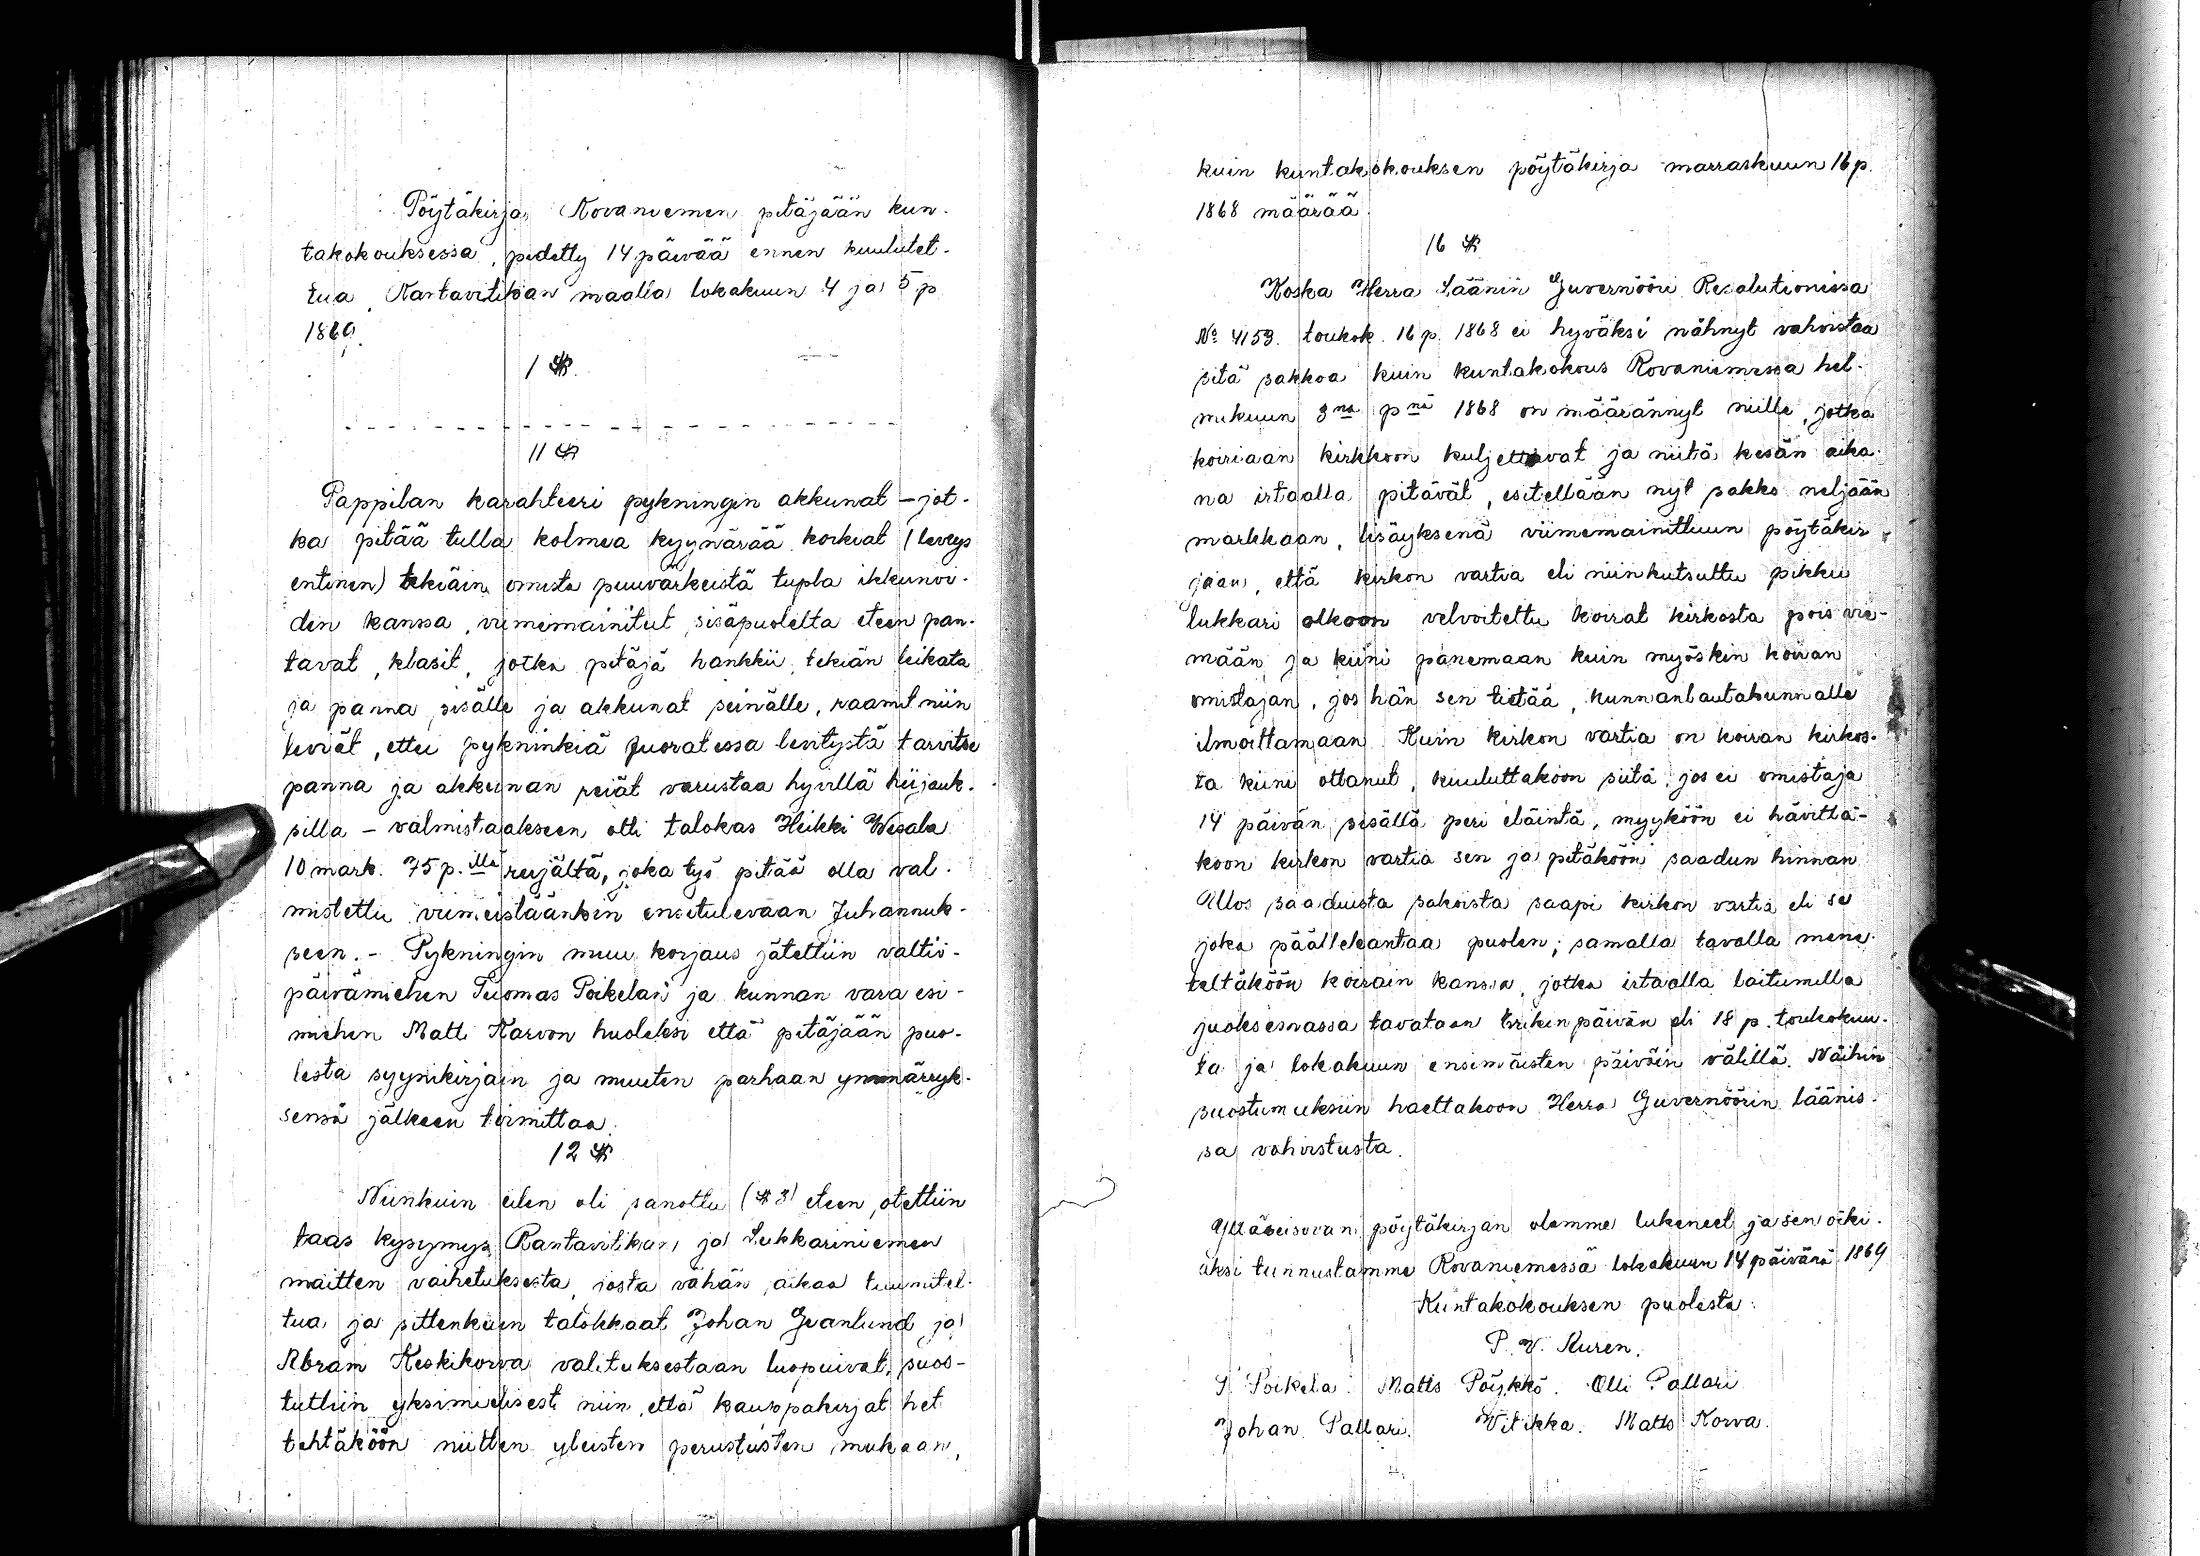 Pöytäkirja, Rovaniemen pitäjään kun-
takokouksessa, pidetty 14 päivää ennen kuulutet-
tua, Rantavitikan maalla lokakuun 4 ja 5 p
1869.
1 §.
11 §
Pappilan karahteeri pykningin akkunat – jot-
ka pitää tulla kolmea kyynärää korkiat (leveys
entinen) tekiäin omista puuvärkeistä tupla ikkunoi-
den kanssa, viimemainitut sisäpuolelta eteen pan-
tavat, klasit, jotka pitäjä hankkii, tekiän leikata
ja panna sisälle ja akkunat seinälle, raamit niin
leviät, ettei pykninkiä vuoratessa levitystä tarvitse
panna ja akkunan reiät varustaa hyvillä hiijauk-
silla – valmistaakseen otti talokas Heikki Wesala
10 mark. 75 p.illa reijältä, joka työ pitää olla val-
mistettu viimeistäänkin ensitulevaan Juhannuk-
seen. – Pykningin muu korjaus jätettiin valtio-
päivämiehen Tuomas Poikelan ja kunnan vara esi-
miehen Matti Karvon huoleksi että pitäjään puo-
lesta syynikirjain ja muuten parhaan ymmärryk-
sensä jälkeen toimittaa.
12 §
Niinkuin eilen oli sanottu (§ 3) eteen otettiin
taas kysymys Rantavitikan ja Lukkariniemen
maitten vaihetuksesta, josta vähän aikaa tuumitel-
tua ja sittenkuin talokkaat Johan Granlund ja
Abram Keskikorva valituksestaan luopuivat, suos-
tuttiin yksimielisesti niin, että kauppakirjat het
tehtäköön niitten yleisten perustusten mukaan,
kuin kuntakokouksen pöytäkirja marraskuun 16 p.
1868 määrää.
16 §
Koska Herra Läänin Guvernööri Resolutionissa
No 4159. toukok. 16 p. 1868 ei hyväksi nähnyt vahvistaa
sitä sakkoa kuin kuntakokous Rovaniemessä hel-
mikuun 3na pnä 1868 on määrännyt niille, jotka
koiriaan kirkkoon kuljettavat ja niitä kesän aika-
na irtaalla pitävät, esitellään nyt sakko neljään
markkaan, lisäyksenä viimemainittuun pöytäkir-
jaan, että kirkon vartia eli niinkutsuttu pikku
lukkari olkoon velvoitettu koirat kirkosta pois vie-
mään ja kiini panemaan kuin myöskin koiran
omistajan, jos hän sen tietää, kunnanlautakunnalle
ilmoittamaan. Kuin kirkon vartia on koiran kirkos-
ta kiini ottanut, kuuluttakoon siitä, jos ei omistaja
14 päivän sisällä peri eläintä, myyköön ei hävittä-
köön kirkon vartia sen ja pitäköön saadun hinnan
Ullos saaduista sakoista saapi kirkon vartia eli se
joka päällekantaa puolen; samalla tavalla mene-
teltäköön koirain kanssa, jotka irtaalla laitumella
juoksemassa tavataan Eerikin päivän eli 18 p. toukokuu-
ta ja lokakuun ensimäisten päiväin välillä. Näihin
suostumuksiin haettakoon Herra Guvernöörin läänis-
sä vahvistusta.
Ylläseisovan pöytäkirjan olemme lukeneet ja sen oiki-
aksi tunnustamme Rovaniemessä lokakuun 14 päivänä 1869
Kuntakokouksen puolesta:
P. V. Ruren.
T Poikela. Matts Pöykkö. Olli Pallari
Johan Pallari. Witikka. Matts Korva.